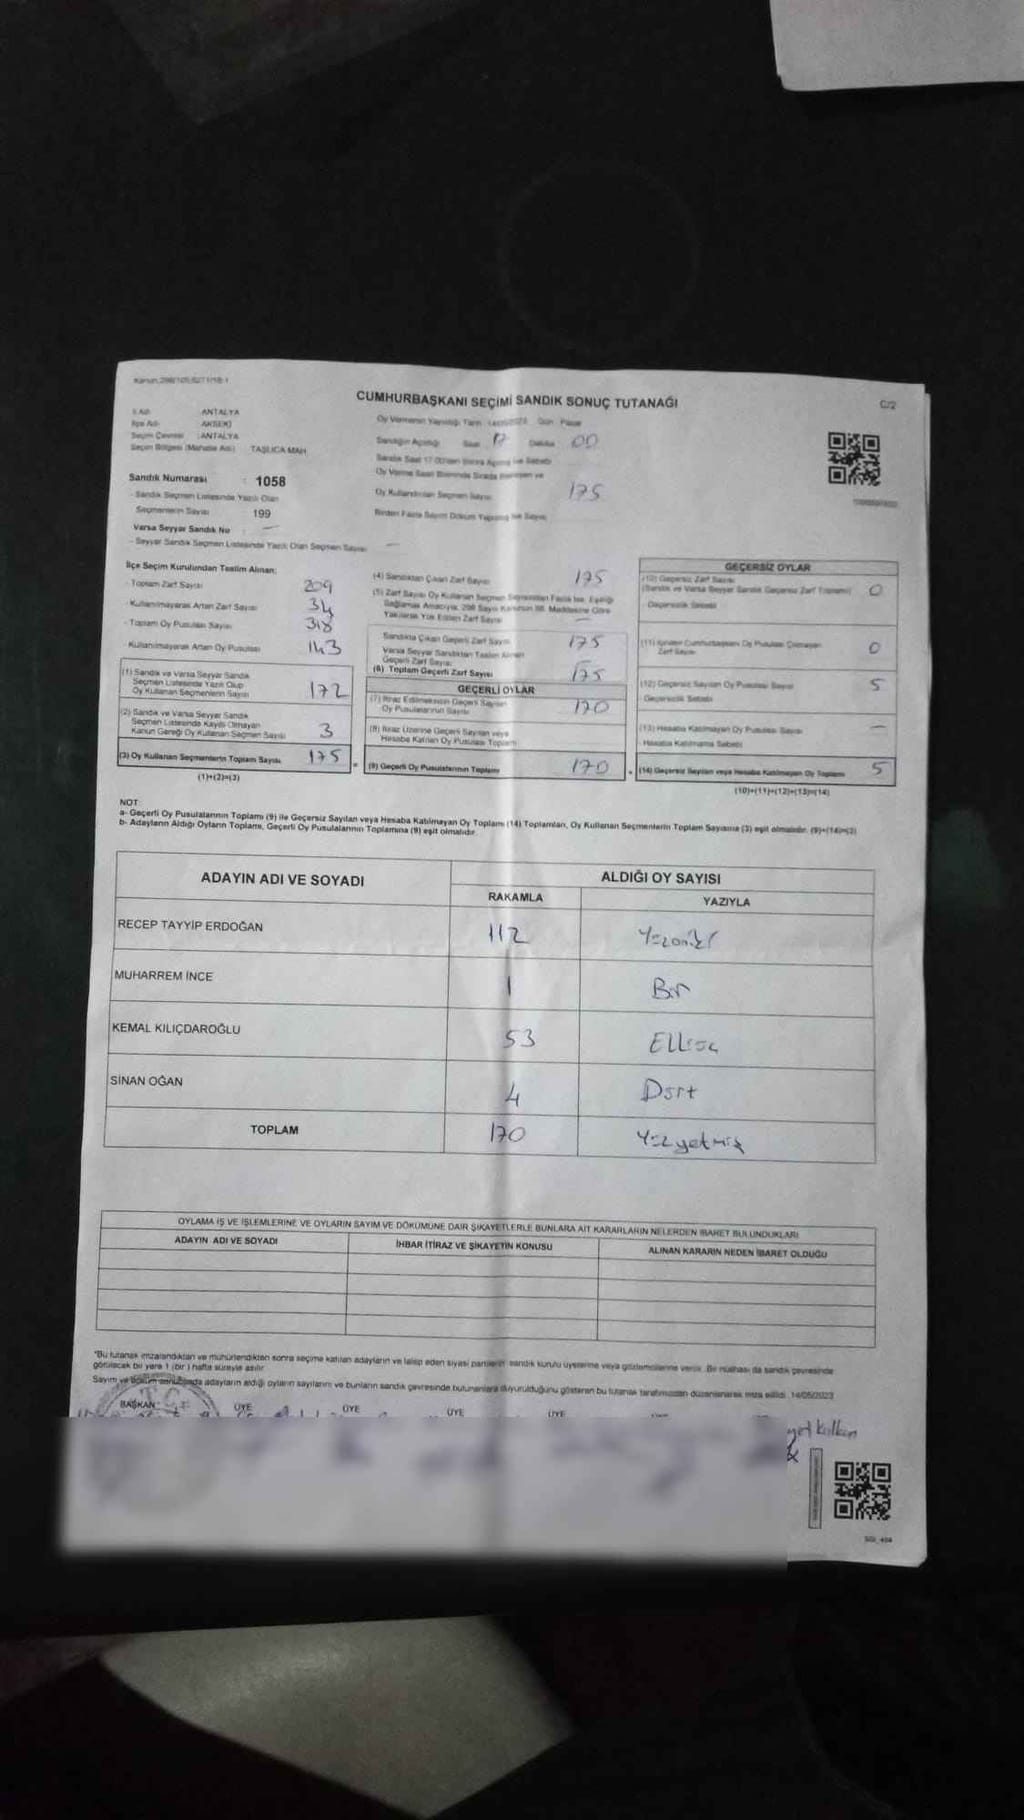 CUMHURBAŞKANI SEÇİMİ SANDIK SONUÇ TUTANAĞI
C/2
İl Adı : ANTALYA
İlçe Adı : AKSEKİ
Seçim Çevresi : ANTALYA
Seçim Bölgesi (Mahalle Adı) : TAŞLICA MAH
Sandık Numarası : 1058
- Sandık Seçmen Listesinde Yazılı Olan
Seçmenlerin Sayısı 199
Varsa Seyyar Sandık No : —
- Seyyar Sandık Seçmen Listesinde Yazılı Olan Seçmen Sayısı —
Sandığın Açıldığı Saat 17 Dakika 00
Oy Kullandırılan Seçmen Sayısı 175
Birden Fazla Sayım Döküm Yapılmış İse Sayısı
İlçe Seçim Kurulundan Teslim Alınan;
- Toplam Zarf Sayısı 209
- Kullanılmayarak Artan Zarf Sayısı 34
- Toplam Oy Pusulası Sayısı 318
- Kullanılmayarak Artan Oy Pusulası 143
(1) Sandık ve Varsa Seyyar Sandık
Seçmen Listesinde Yazılı Olup
Oy Kullanan Seçmenlerin Sayısı 172
(2) Sandık ve Varsa Seyyar Sandık
Seçmen Listesinde Kayıtlı Olmayan
Kanun Gereği Oy Kullanan Seçmen Sayısı 3
(3) Oy Kullanan Seçmenlerin Toplam Sayısı 175
(1)+(2)=(3)
(4) Sandıktan Çıkan Zarf Sayısı 175
(5) Zarf Sayısı Oy Kullanan Seçmen Sayısından Fazla İse, Eşitliği
Sağlamak Amacıyla, 298 Sayılı Kanunun 98. Maddesine Göre
Yakılarak Yok Edilen Zarf Sayısı —
Sandıkta Çıkan Geçerli Zarf Sayısı 175
Varsa Seyyar Sandıktan Teslim Alınan
Geçerli Zarf Sayısı
(6) Toplam Geçerli Zarf Sayısı 175
GEÇERLİ OYLAR
(7) İtiraz Edilmeksizin Geçerli Sayılan
Oy Pusulalarının Sayısı 170
(8) İtiraz Üzerine Geçerli Sayılan veya
Hesaba Katılan Oy Pusulası Toplamı
(9) Geçerli Oy Pusulalarının Toplamı 170
GEÇERSİZ OYLAR
(10) Geçersiz Zarf Sayısı 0
(Sandık ve Varsa Seyyar Sandık Geçersiz Zarf Toplamı)
Geçersizlik Sebebi
Zarf Sayısı 0
(12) Geçersiz Sayılan Oy Pusulası Sayısı 5
Geçersizlik Sebebi
(13) Hesaba Katılmayan Oy Pusulası Sayısı —
Hesaba Katılmama Sebebi
(14) Geçersiz Sayılan veya Hesaba Katılmayan Oy Toplamı 5
(10)+(11)+(12)+(13)=(14)
NOT:
a- Geçerli Oy Pusulalarının Toplamı (9) ile Geçersiz Sayılan veya Hesaba Katılmayan Oy Toplamı (14) Toplamları, Oy Kullanan Seçmenlerin Toplam Sayısına (3) eşit olmalıdır. (9)+(14)=(3)
b- Adayların Aldığı Oyların Toplamı, Geçerli Oy Pusulalarının Toplamına (9) eşit olmalıdır.
ADAYIN ADI VE SOYADI ALDIĞI OY SAYISI
RAKAMLA YAZIYLA
RECEP TAYYİP ERDOĞAN 112 Yüzoniki
MUHARREM İNCE 1 Bir
KEMAL KILIÇDAROĞLU 53 Elliüç
SİNAN OĞAN 4 Dört
TOPLAM 170 Yüzyetmiş
OYLAMA İŞ VE İŞLEMLERİNE VE OYLARIN SAYIM VE DÖKÜMÜNE DAİR ŞİKAYETLERLE BUNLARA AİT KARARLARIN NELERDEN İBARET BULUNDUKLARI
ADAYIN ADI VE SOYADI İHBAR İTİRAZ VE ŞİKAYETİN KONUSU ALINAN KARARIN NEDEN İBARET OLDUĞU
"Bu tutanak imzalandıktan ve mühürlendikten sonra seçime katılan adayların ve talep eden siyasi partilerin sandık kurulu üyelerine veya gözlemcilerine verilir. Bir nüshası da sandık çevresinde
görülecek bir yere 1 (bir) hafta süreyle asılır.
Sayım ve döküm sonucunda adayların aldığı oyların sayılarını ve bunların sandık çevresinde bulunanlara duyurulduğunu gösteren bu tutanak tarafımızdan düzenlenerek imza edildi. 14/05/2023
BAŞKAN ÜYE ÜYE ÜYE ÜYE
Kalkan